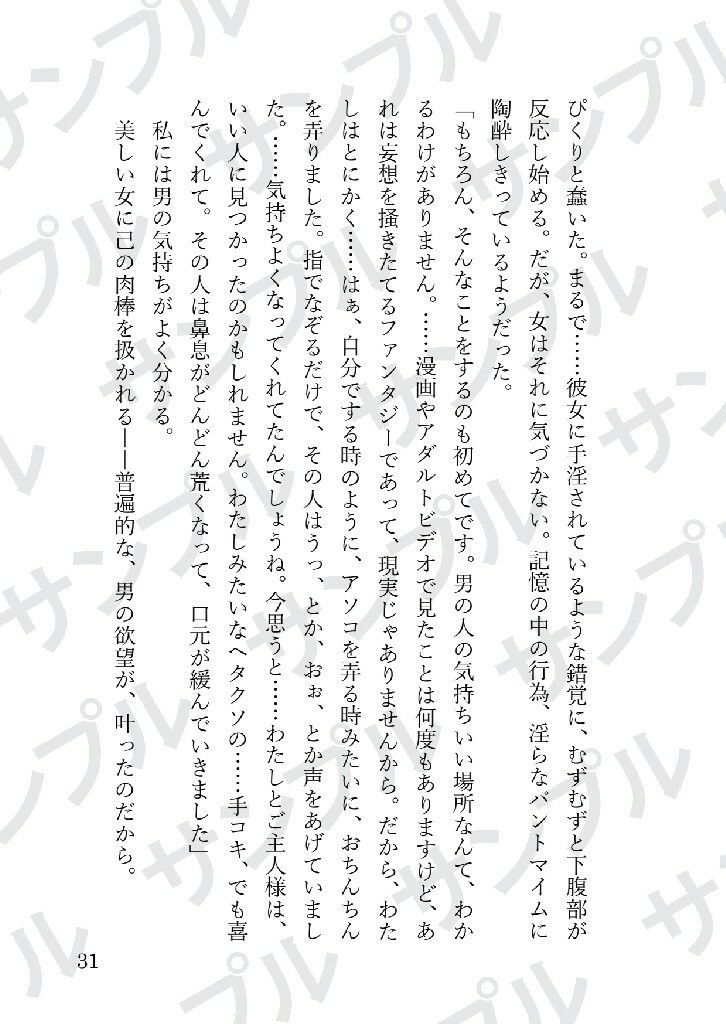 ぴくりと蠢いた。まるで……彼女に手淫されているような錯覚に、むずむずと下腹部が
反応し始める。だが、女はそれに気づかない。記憶の中の行為、淫らなパントマイムに
陶酔しきっているようだった。
「もちろん、そんなことをするのも初めてです。男の人の気持ちいい場所なんて、わか
るわけがありません。……漫画やアダルトビデオで見たことは何度もありますけど、あ
れは妄想を掻きたてるファンタジーであって、現実じゃありませんから。だから、わた
しはとにかく……はぁ、自分でする時のように、アソコを弄る時みたいに、おちんちん
を弄りました。指でなぞるだけで、その人はうっ、とか、おぉ、とか声をあげていまし
た。……気持ちよくなってくれてたんでしょうね。今思うと……わたしとご主人様は、
いい人に見つかったのかもしれません。わたしみたいなヘタクソの……手コキ、でも喜
んでくれて。その人は鼻息がどんどん荒くなって、口元が緩んでいきました」
私には男の気持ちがよく分かる。
美しい女に己の肉棒を扱かれる――普遍的な、男の欲望が、叶ったのだから。
31
サンプル
サンプル
サンプル
サンプル
サンプル
サンプル
サンプル
サンプル
サンプル
サンプル